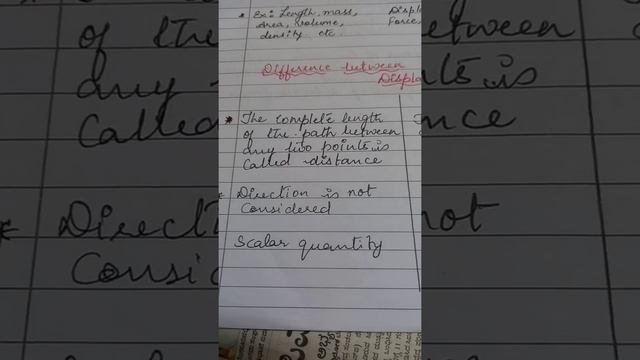 * Ex: Length, mass, Displ
Area, volume, Force,
density etc
Difference between
Displa
* The complete length
of the path between
any two points is
called distance
* Direction is not
Considered
Scalar quantity